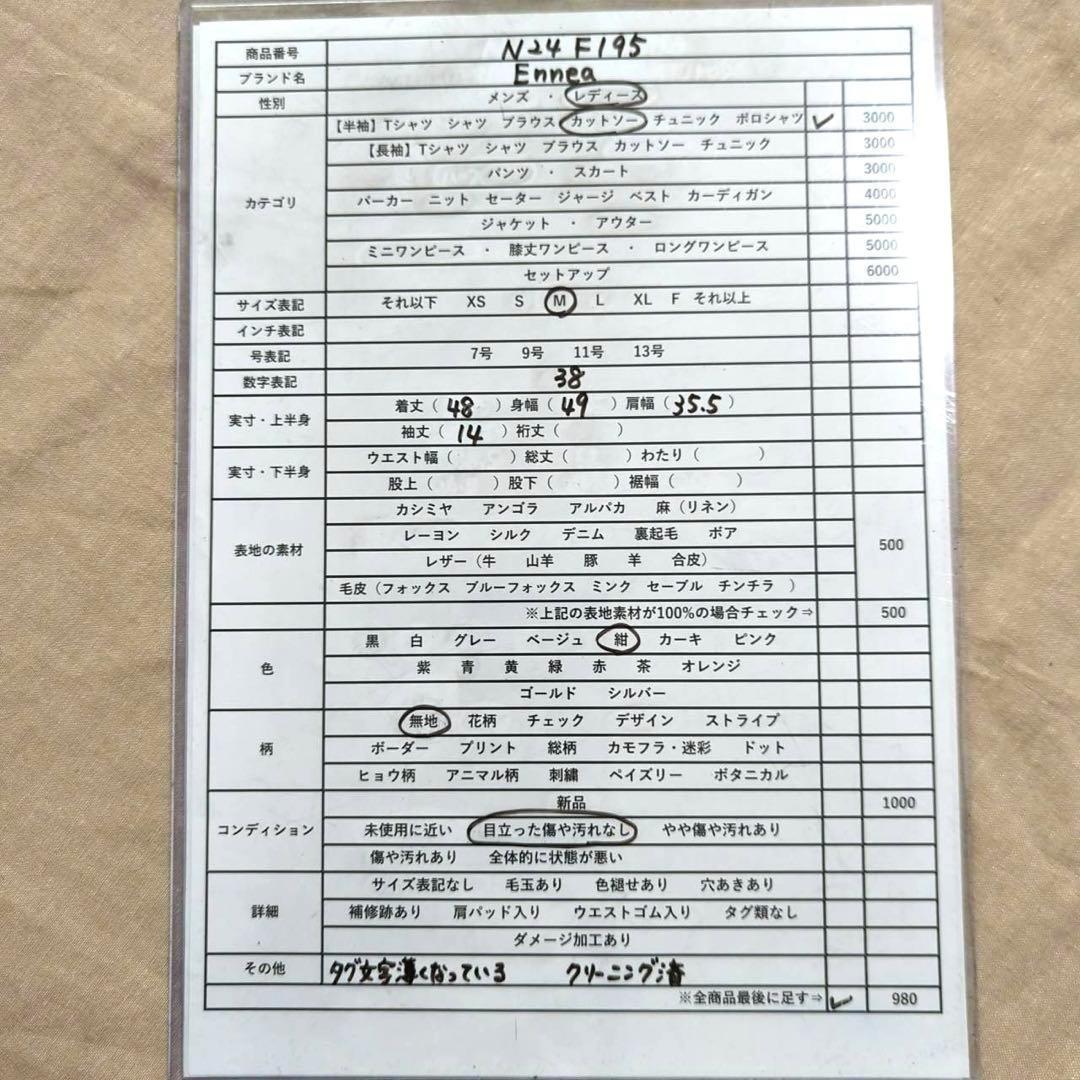 商品番号 N24F195
ブランド名 Ennea
性別 メンズ ・ レディース
カテゴリ
【半袖】Tシャツ シャツ ブラウス カットソー チュニック ポロシャツ ✓ 3000
【長袖】Tシャツ シャツ ブラウス カットソー チュニック 3000
パンツ ・ スカート 3000
パーカー ニット セーター ジャージ ベスト カーディガン 4000
ジャケット ・ アウター 5000
ミニワンピース ・ 膝丈ワンピース ・ ロングワンピース 5000
セットアップ 6000
サイズ表記 それ以下 XS S M L XL F それ以上
インチ表記
号表記 7号 9号 11号 13号
数字表記 38
実寸・上半身
着丈（ 48 ）身幅（ 49 ）肩幅（ 35.5 ）
袖丈（ 14 ）裄丈（ ）
実寸・下半身
ウエスト幅（ ）総丈（ ）わたり（ ）
股上（ ）股下（ ）裾幅（ ）
表地の素材
カシミヤ アンゴラ アルパカ 麻（リネン）
レーヨン シルク デニム 裏起毛 ボア 500
レザー（牛 山羊 豚 羊 合皮）
毛皮（フォックス ブルーフォックス ミンク セーブル チンチラ ）
※上記の表地素材が100%の場合チェック⇒ 500
色
黒 白 グレー ベージュ 紺 カーキ ピンク
紫 青 黄 緑 赤 茶 オレンジ
ゴールド シルバー
柄
無地 花柄 チェック デザイン ストライプ
ボーダー プリント 総柄 カモフラ・迷彩 ドット
ヒョウ柄 アニマル柄 刺繍 ペイズリー ボタニカル
コンディション
新品 1000
未使用に近い 目立った傷や汚れなし やや傷や汚れあり
傷や汚れあり 全体的に状態が悪い
詳細
サイズ表記なし 毛玉あり 色褪せあり 穴あきあり
補修跡あり 肩パッド入り ウエストゴム入り タグ類なし
ダメージ加工あり
その他 タグ文字薄くなっている クリーニング済
※全商品最後に足す⇒ ✓ 980